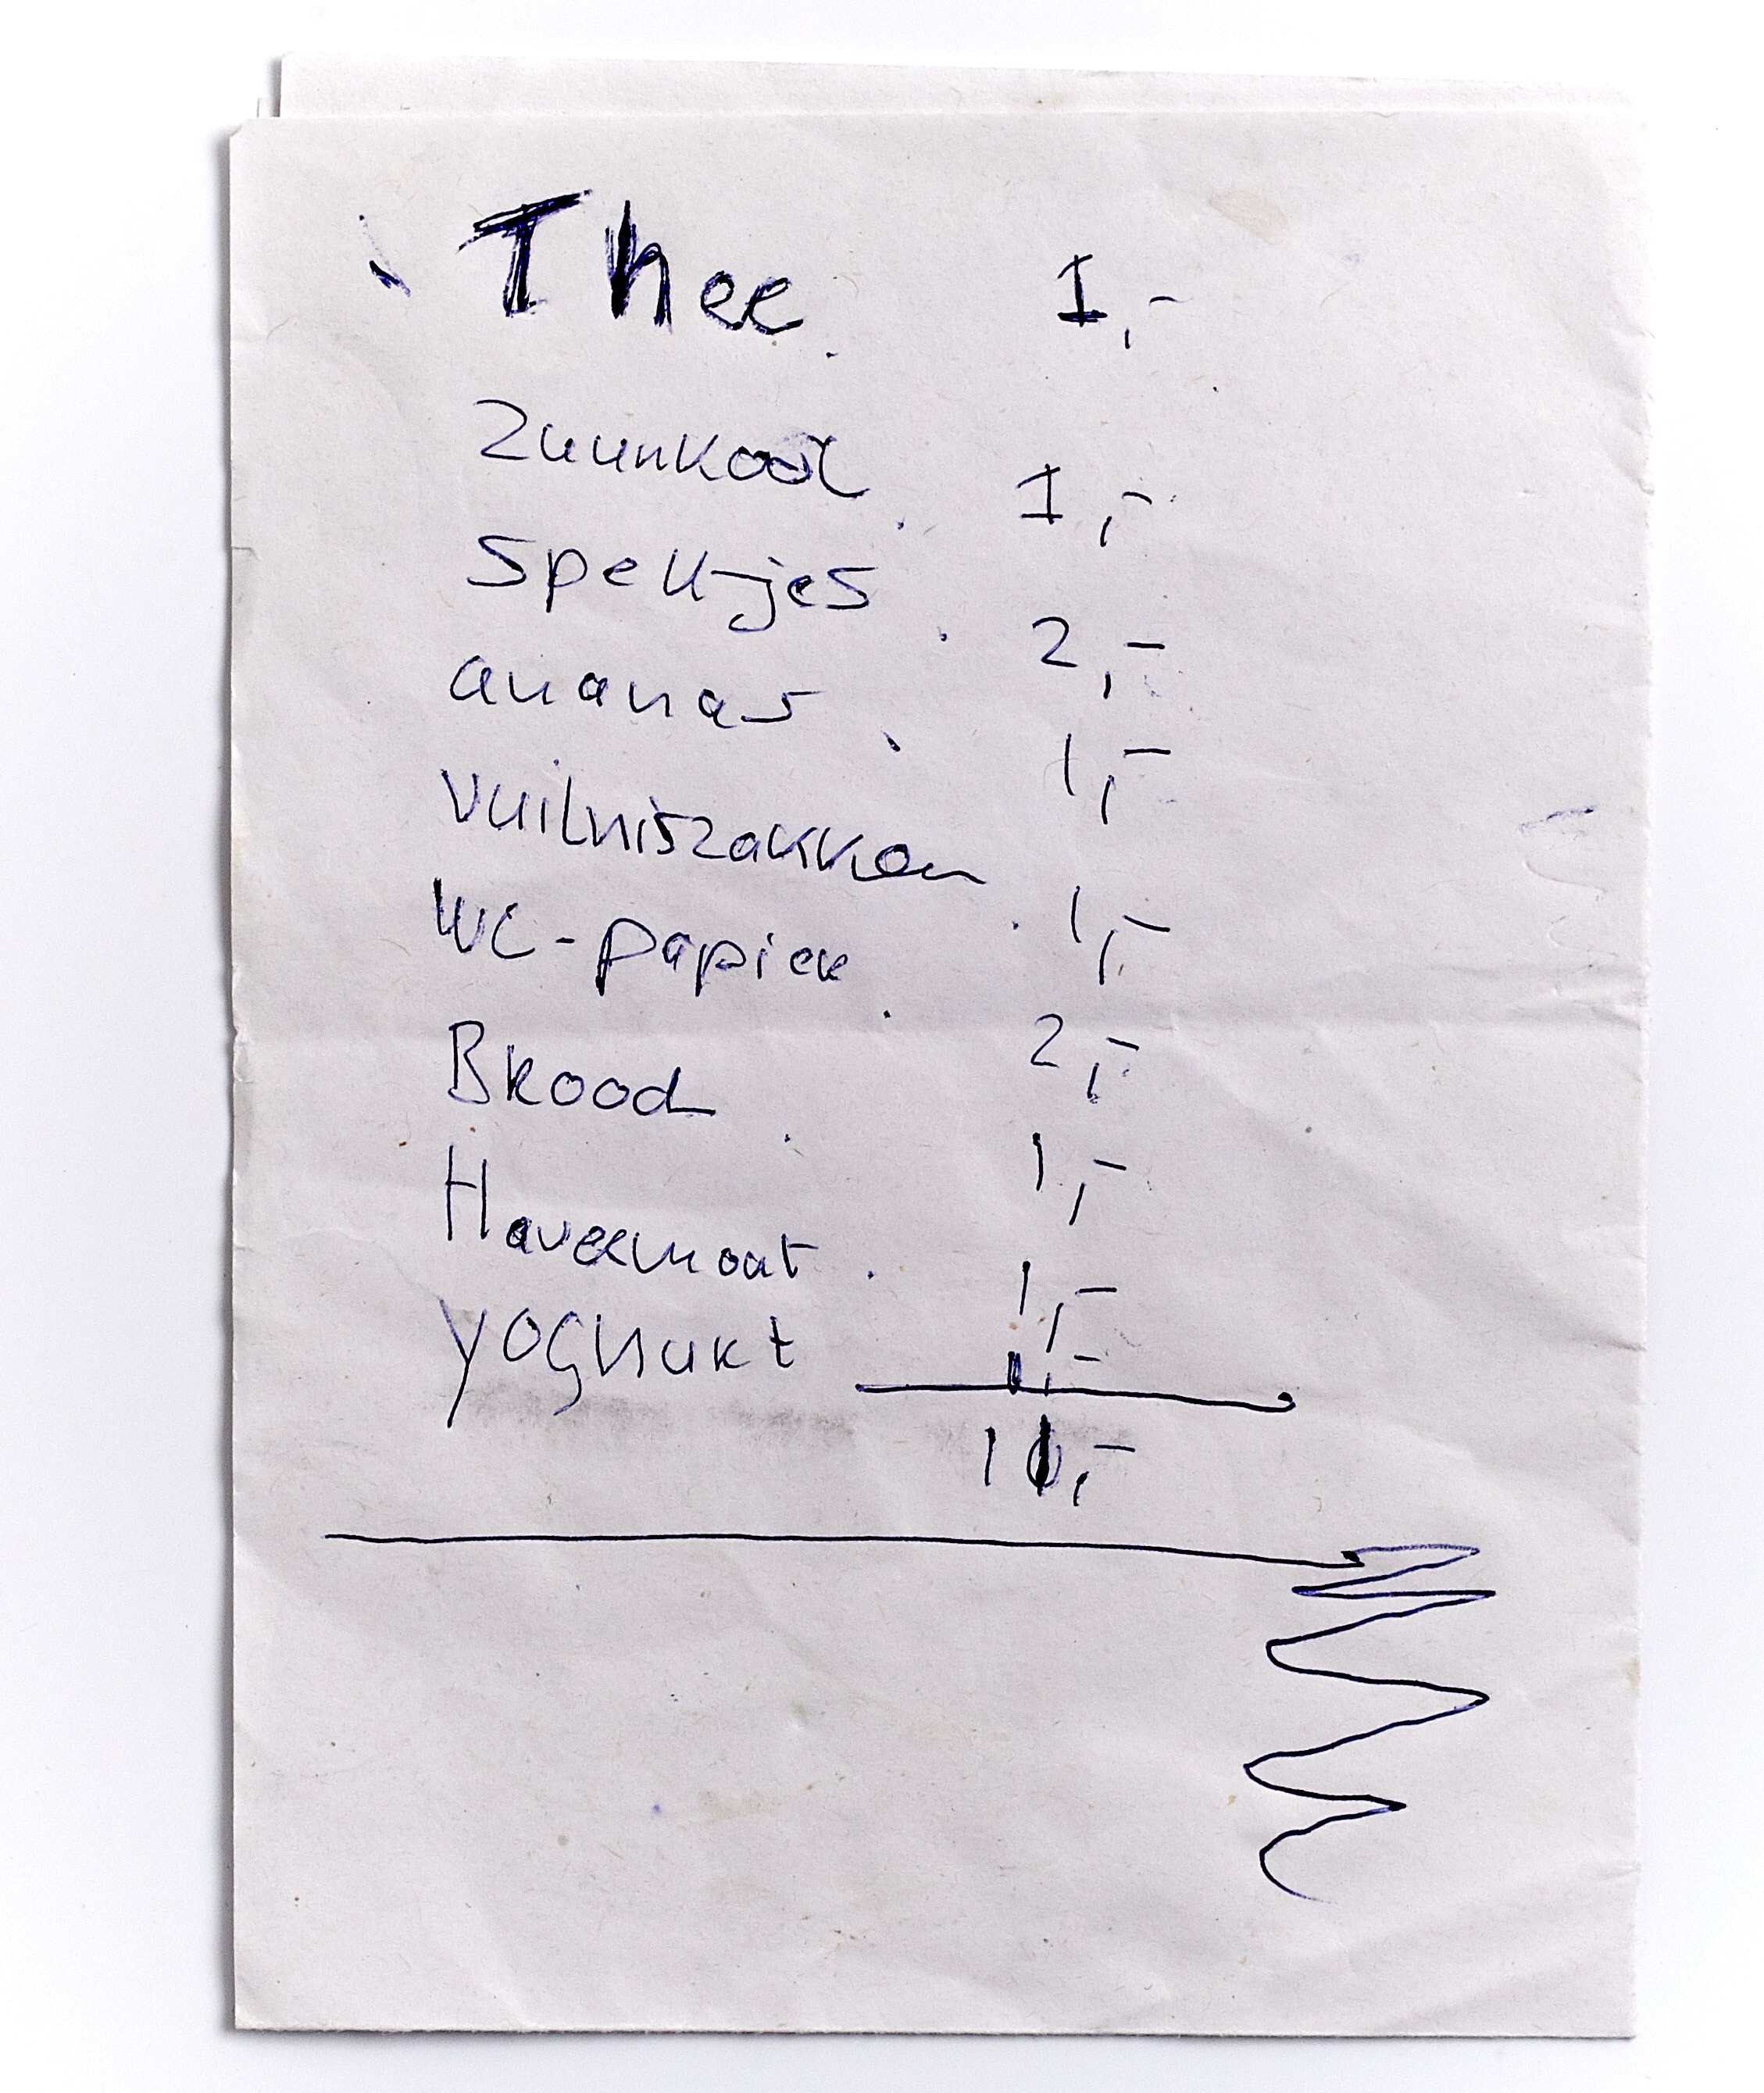 Thee 1,-
Zuurkool 1,-
Spekjes 2,-
ananas 1,-
vuilniszakken 1,-
WC-papier 2,-
Brood 1,-
Havermout 1,-
yoghurt 1,-
11,-